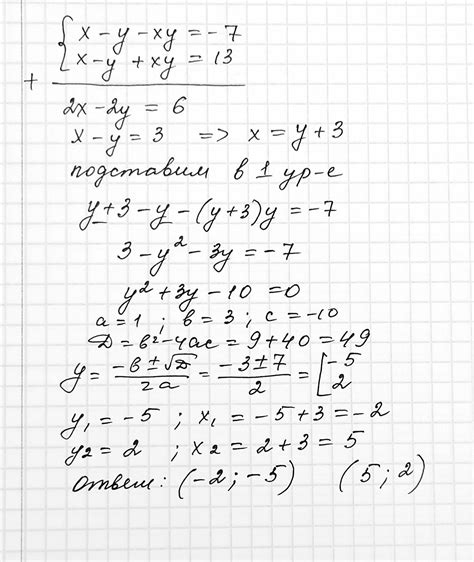 { x - y - xy = -7
x - y + xy = 13
+
2x - 2y = 6
x - y = 3 => x = y + 3
подставим в 1 ур-е
y + 3 - y - (y + 3)y = -7
3 - y² - 3y = -7
y² + 3y - 10 = 0
a = 1 ; в = 3 ; c = -10
D = в² - 4ac = 9 + 40 = 49
y = (-в ± √D)/2a = (-3 ± 7)/2 = [ -5
2
y₁ = -5 ; x₁ = -5 + 3 = -2
y2 = 2 ; x2 = 2 + 3 = 5
Ответ: (-2 ; -5) (5 ; 2)